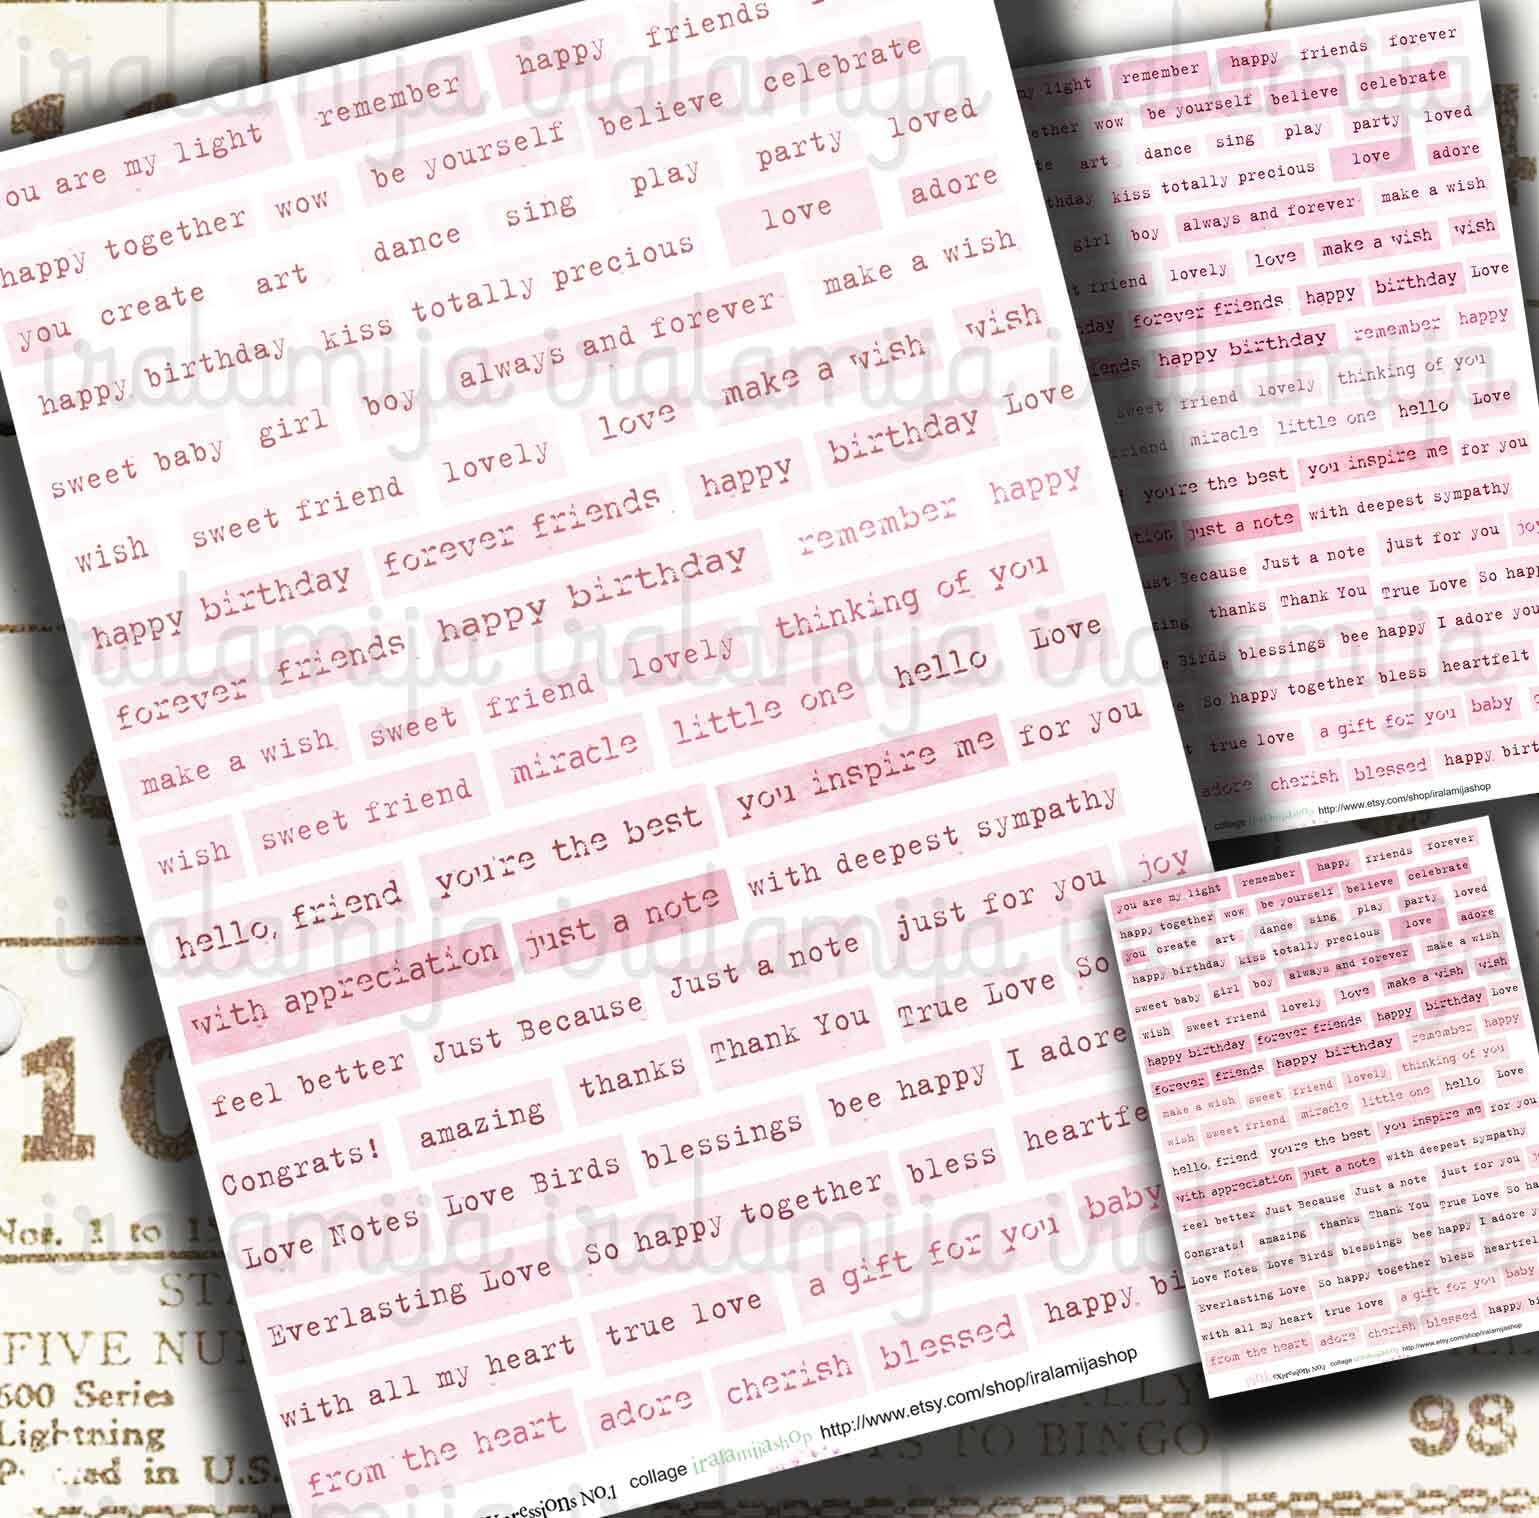 friends
remember happy
you are my light
be yourself believe celebrate
happy together wow
dance sing play party loved
you create art
happy birthday kiss totally precious love adore
sweet baby girl boy always and forever make a wish
wish sweet friend lovely love make a wish wish
happy birthday forever friends happy birthday Love
forever friends happy birthday remember happy
make a wish sweet friend lovely thinking of you
wish sweet friend miracle little one hello Love
hello, friend you're the best you inspire me for you
with appreciation just a note with deepest sympathy
feel better Just Because Just a note just for you joy
Congrats! amazing thanks Thank You True Love So
Love Notes Love Birds blessings bee happy I adore
Everlasting Love So happy together bless heartfe
with all my heart true love a gift for you baby
from the heart adore cherish blessed happy bi
pressions NO.1 collage iralamijashop http://www.etsy.com/shop/iralamijashop
my light remember happy friends forever
ether wow be yourself believe celebrate
art dance sing play party loved
thday kiss totally precious love adore
girl boy always and forever make a wish
t friend lovely love make a wish wish
day forever friends happy birthday Love
ends happy birthday remember happy
sweet friend lovely thinking of you
friend miracle little one hello Love
you're the best you inspire me for you
tion just a note with deepest sympathy
ust Because Just a note just for you joy
zing thanks Thank You True Love So hap
Birds blessings bee happy I adore you
So happy together bless heartfelt
true love a gift for you baby
adore cherish blessed happy birt
collage iralamijashop http://www.etsy.com/shop/iralamijashop
you are my light remember happy friends forever
happy together wow be yourself believe celebrate
you create art dance sing play party loved
happy birthday kiss totally precious love adore
sweet baby girl boy always and forever make a wish
wish sweet friend lovely love make a wish wish
happy birthday forever friends happy birthday Love
forever friends happy birthday remember happy
make a wish sweet friend lovely thinking of you
wish sweet friend miracle little one hello Love
hello, friend you're the best you inspire me for you
with appreciation just a note with deepest sympathy
feel better Just Because Just a note just for you
Congrats! amazing thanks Thank You True Love So ha
Love Notes Love Birds blessings bee happy I adore y
Everlasting Love So happy together bless heartfel
with all my heart true love a gift for you baby
from the heart adore cherish blessed happy bi
pink expressions NO.1 collage iralamijashop http://www.etsy.com/shop/iralamijashop
10
Nos. 1 to 15
FIVE NU
500 Series
Lightning
in U.S.
TO BINGO
98
iralamija iralamija iralamija
iralamija iralamija iralamija
iralamija iralamija iralamija
iralamija iralamija iralamija
iralamija iralamija iralamija